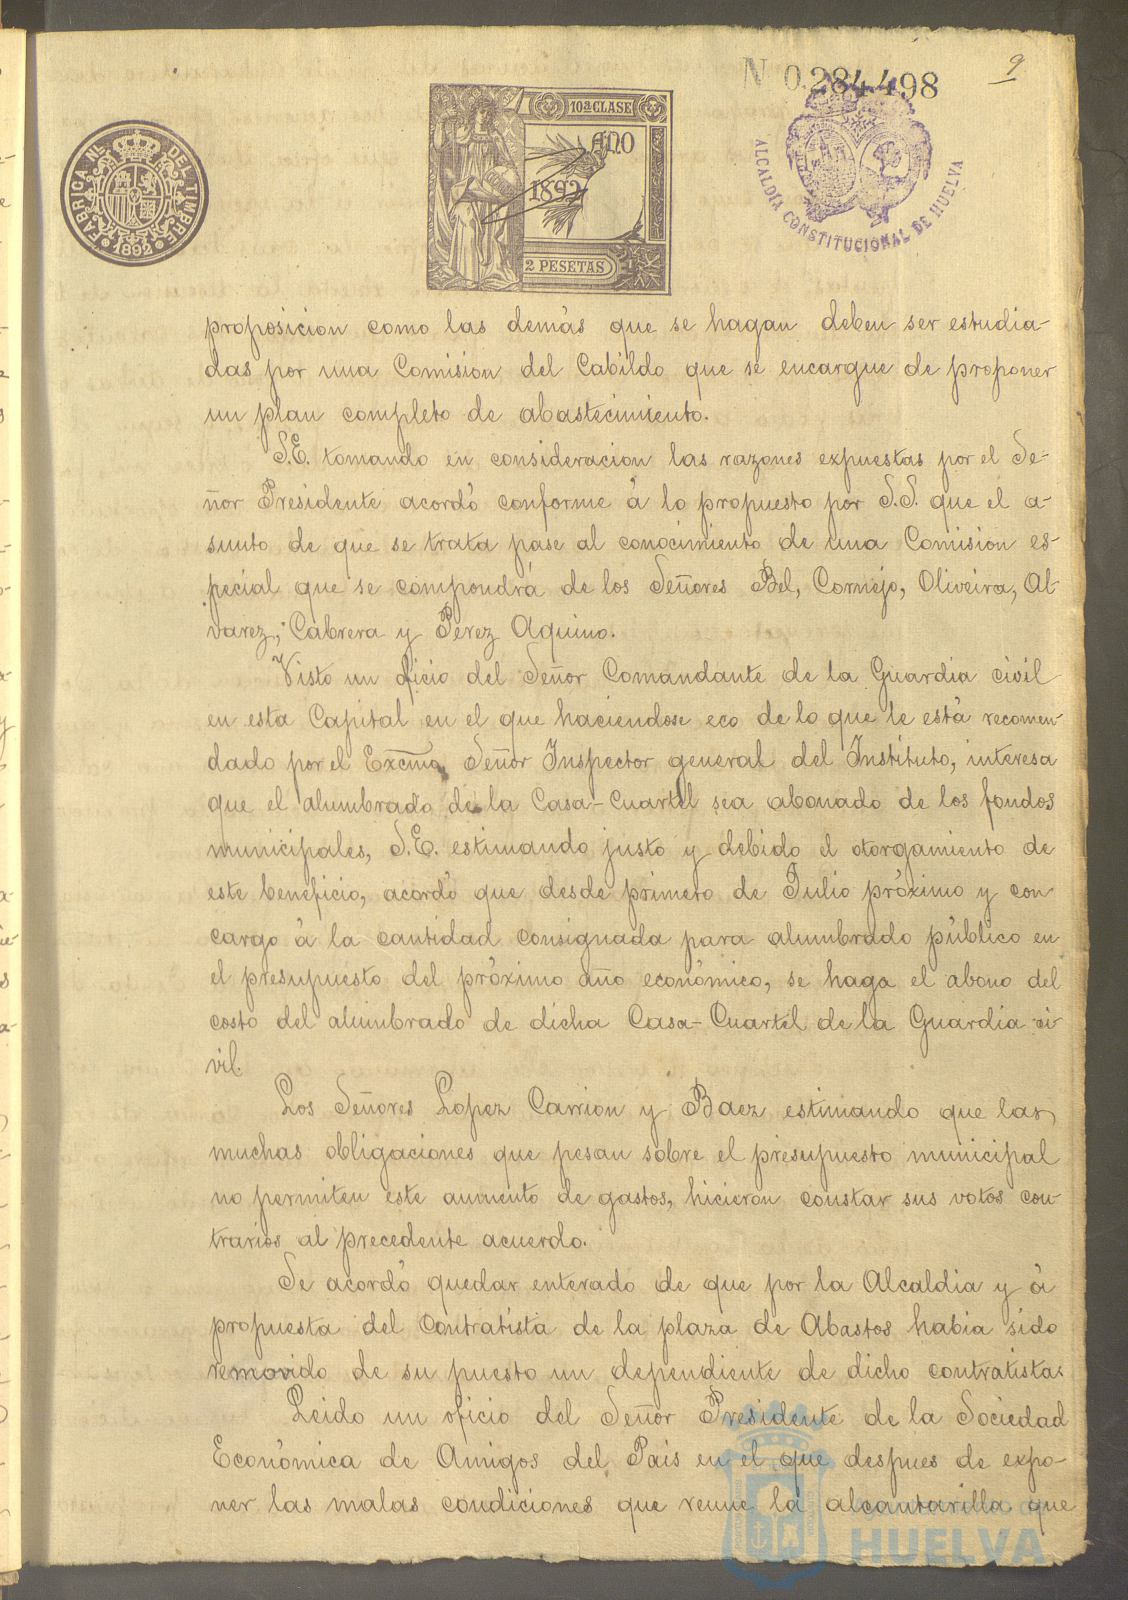 9
N 0.284.498
FABRICA NL. DEL TIMBRE
1892
10ª CLASE
AÑO
1892
2 PESETAS
ALCALDÍA CONSTITUCIONAL DE HUELVA
proposicion como las demás que se hagan deben ser estudia-
das por una Comision del Cabildo que se encargue de proponer
un plan completo de abastecimiento.
S.E. tomando en consideracion las razones expuestas por el Se-
ñor Presidente acordó conforme á lo propuesto por S.S. que el a-
sunto de que se trata pase al conocimiento de una Comision es-
pecial que se compondrá de los Señores Bel, Cornejo, Oliveira, Al-
varez, Cabrera y Perez Aquino.
Visto un oficio del Señor Comandante de la Guardia civil
en esta Capital en el que haciendose eco de lo que le está recomen-
dado por el Excmo. Señor Inspector general del Instituto, interesa
que el alumbrado de la Casa-Cuartel sea abonado de los fondos
municipales, S.E. estimando justo y debido el otorgamiento de
este beneficio, acordó que desde primero de Julio próximo y con
cargo á la cantidad consignada para alumbrado público en
el presupuesto del próximo año económico, se haga el abono del
costo del alumbrado de dicha Casa-Cuartel de la Guardia ci-
vil.
Los Señores Lopez Carrion y Baez estimando que las
muchas obligaciones que pesan sobre el presupuesto municipal
no permiten este aumento de gastos, hicieron constar sus votos con-
trarios al precedente acuerdo.
Se acordó quedar enterado de que por la Alcaldia y á
propuesta del contratista de la plaza de Abastos habia sido
removido de su puesto un dependiente de dicho contratista.
Leido un oficio del Señor Presidente de la Sociedad
Económica de Amigos del Pais en el que despues de expo-
ner las malas condiciones que reune la alcantarilla que
HUELVA